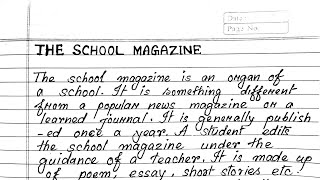 Date:
Page No.
THE SCHOOL MAGAZINE
The school magazine is an organ of
a school. It is something different
from a popular news magazine or a
learned journal. It is generally publish
-ed once a year. A student edits
the school magazine under the
guidance of a teacher. It is made up
of poem, essay, short stories etc.